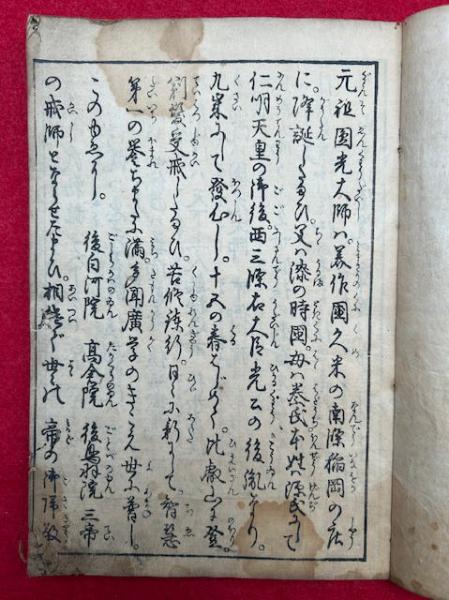 元祖圓光大師ハ。美作國久米の南條稲岡の庄
に。降誕したまひ。父ハ漆の時國。母ハ秦氏本姓ハ源氏にて
仁明天皇の御後。西三條右大臣光公の後胤なり。
九歳にして發心し。十五の春はじめて。比叡山に登
剃髪受戒したまひ。苦修練行。日々に新にして。智慧
第一の誉ちまたに満。多聞廣学のきこえ世に普し。
このゆゑに。後白河院 高倉院 後鳥羽院 三帝
の戒師とならせたまひ。相続ぐ世々の 帝の御帰敬